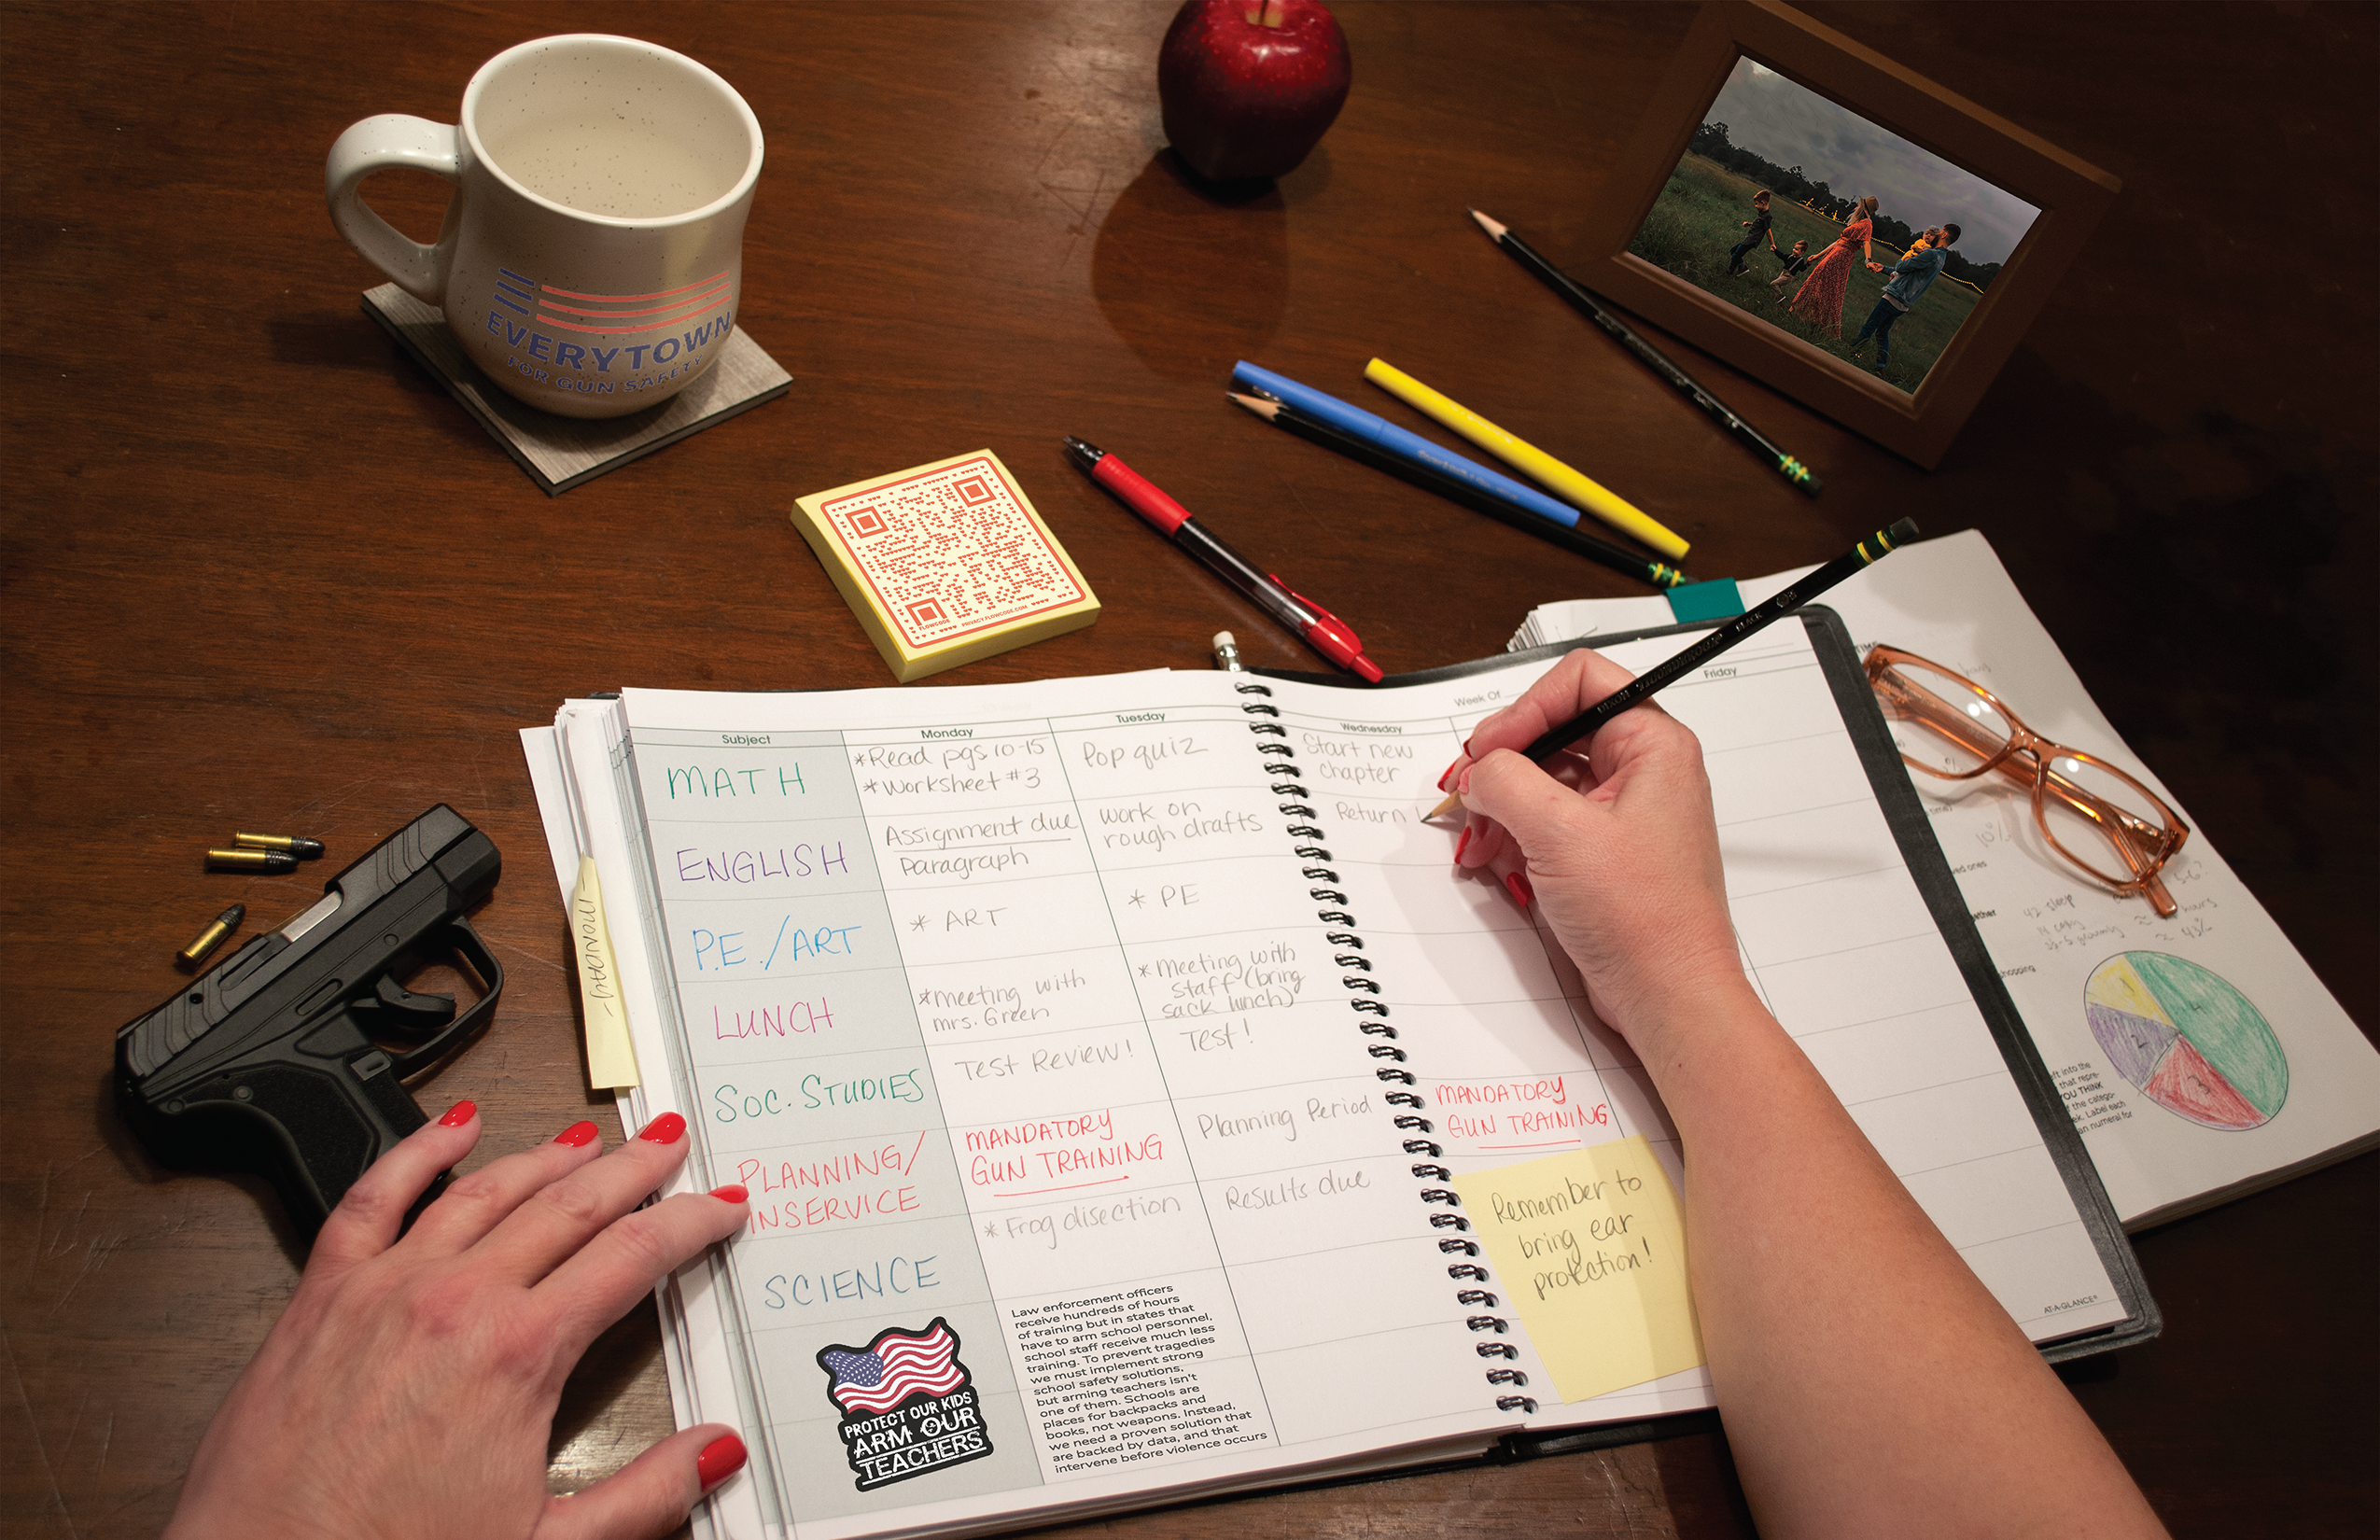 EVERYTOWN
FOR GUN SAFETY
FLOWCODE
PRIVACY.FLOWCODE.COM
Subject
Monday
Tuesday
Week Of
Wednesday
Friday
MATH
*Read pgs 10-15
*Worksheet #3
Pop quiz
Start new
chapter
ENGLISH
Assignment due
Paragraph
work on
rough drafts
Return
P.E./ART
* ART
* PE
LUNCH
*Meeting with
mrs. Green
* Meeting with
staff (bring
sack lunch)
SOC. STUDIES
Test Review!
Test!
PLANNING/
INSERVICE
MANDATORY
GUN TRAINING
Planning Period
MANDATORY
GUN TRAINING
SCIENCE
* Frog disection
Results due
Remember to
bring ear
protection!
-MONDAY-
PROTECT OUR KIDS
ARM OUR
TEACHERS
Law enforcement officers
receive hundreds of hours
of training but in states that
have to arm school personnel,
school staff receive much less
training. To prevent tragedies
we must implement strong
school safety solutions,
but arming teachers isn't
one of them. Schools are
places for backpacks and
books, not weapons. Instead,
we need a proven solution that
are backed by data, and that
intervene before violence occurs
AT-A-GLANCE®
DIXON TICONDEROGA
BLACK
10%
42 sleep
hours
≈ 43%
1
2
3
4
ft into the
that repre-
YOU THINK
f the catego-
ek. Label each
an numeral for